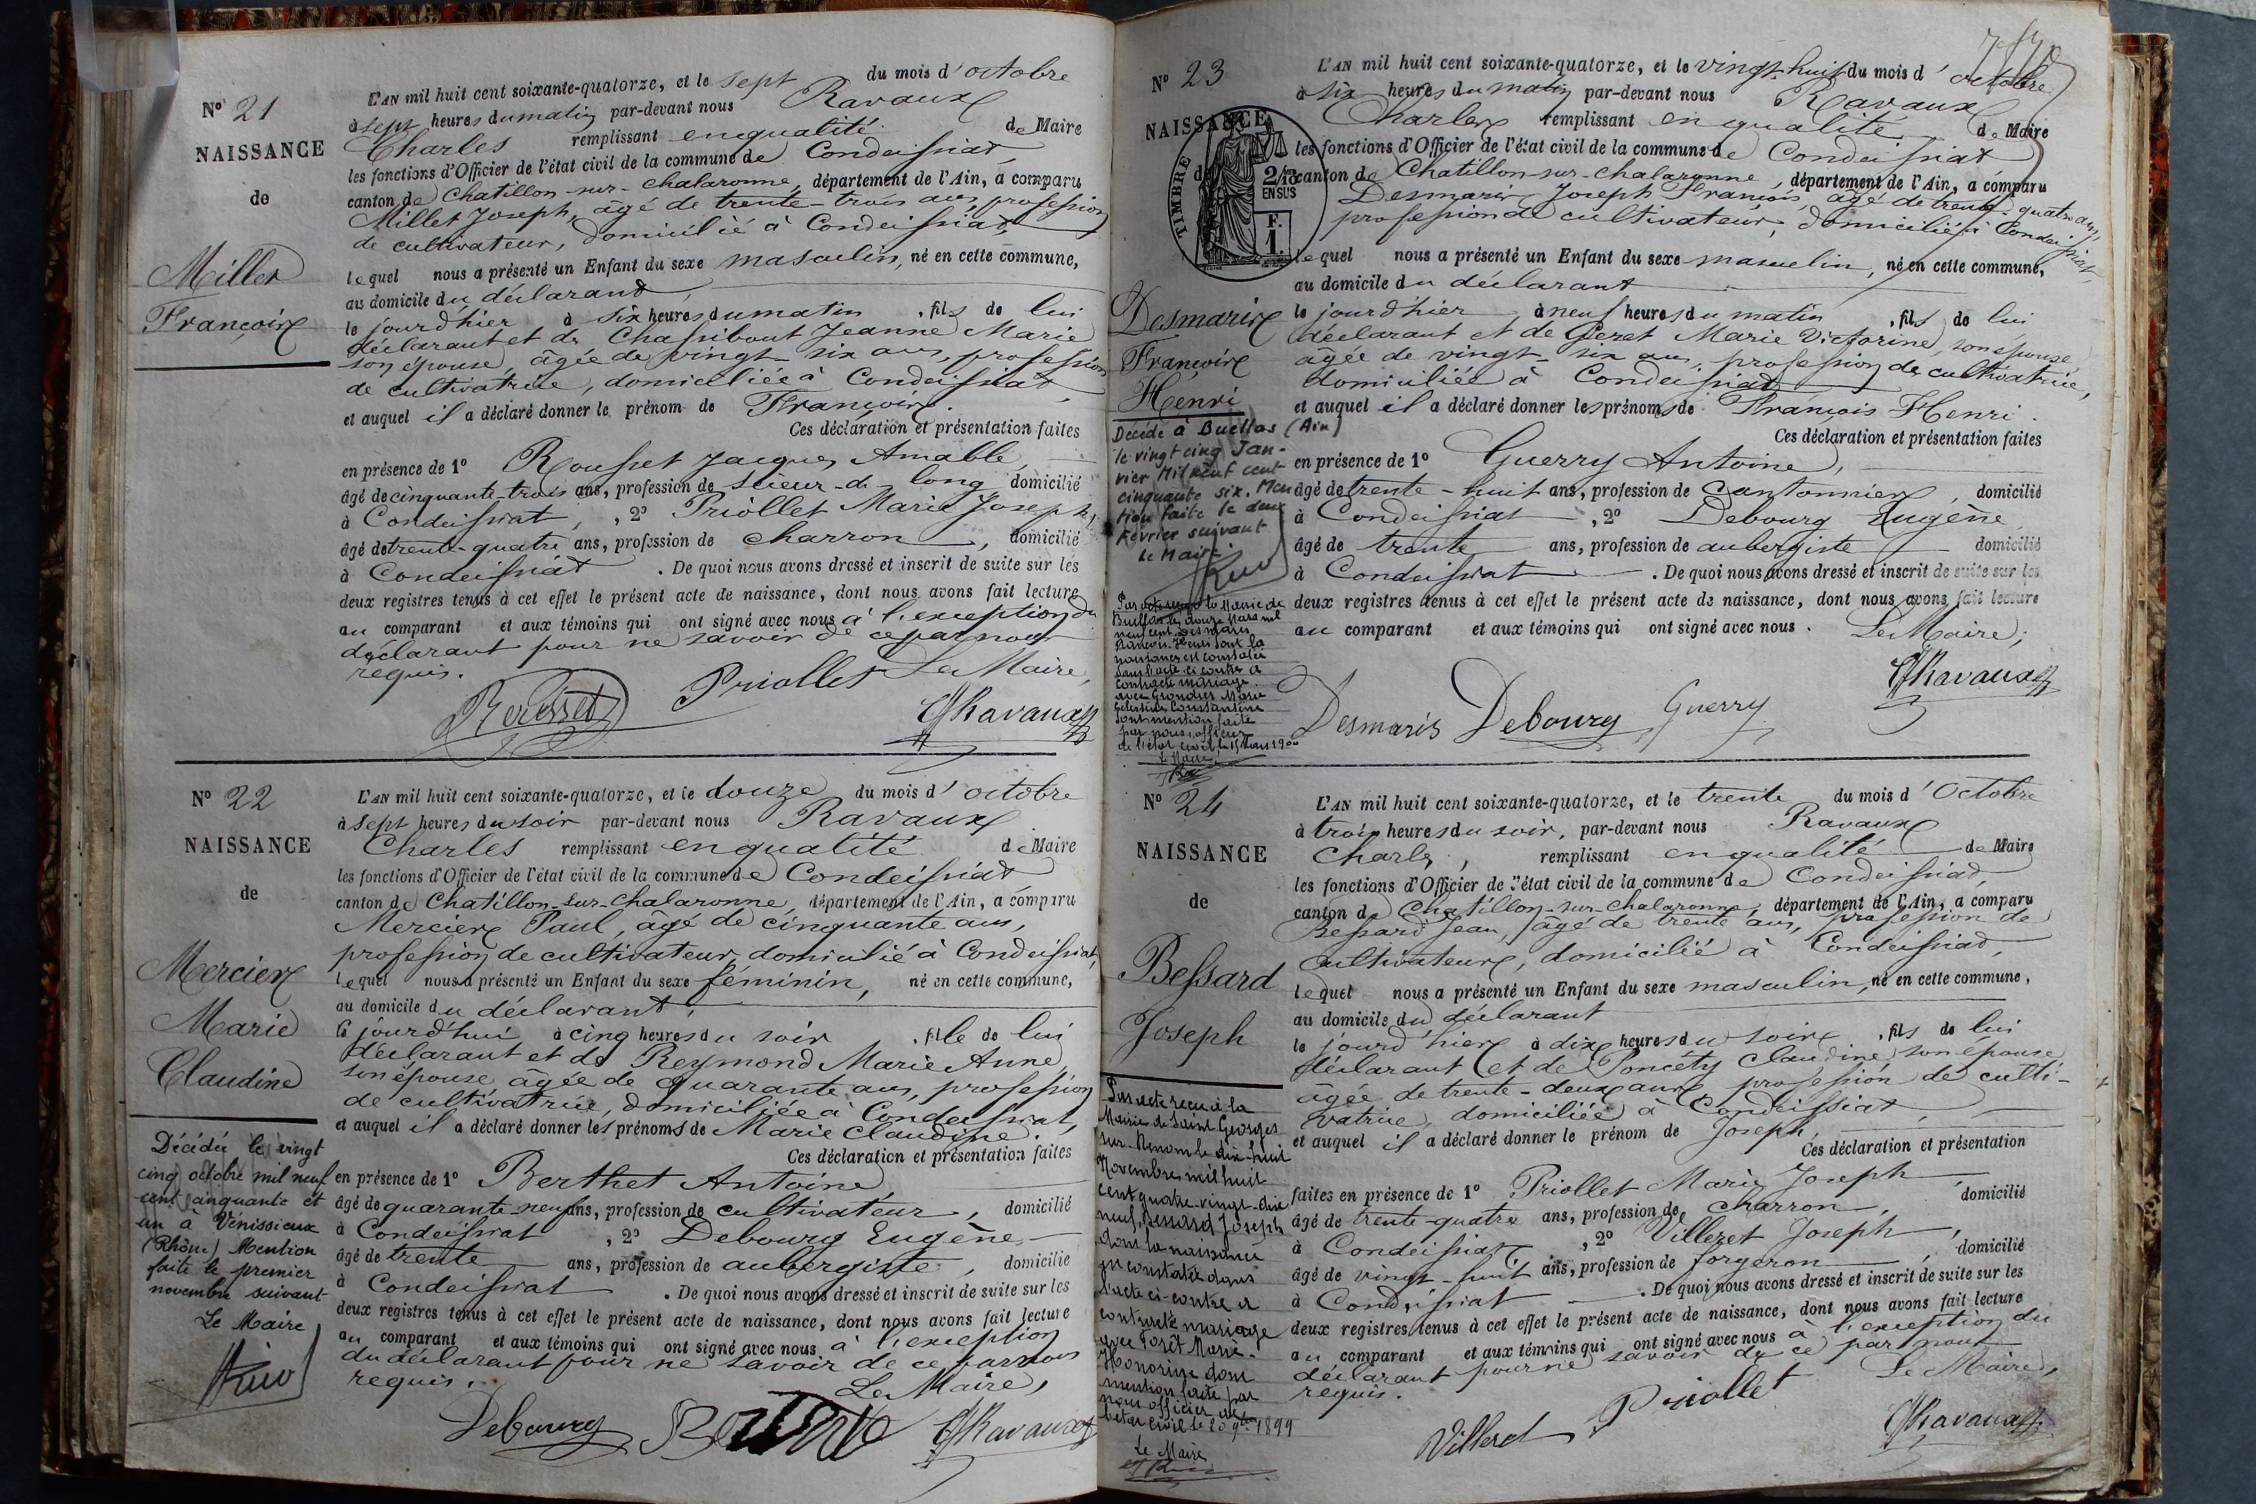 N° 21
NAISSANCE
de
Millet
François
L'AN mil huit cent soixante-quatorze, et le sept du mois d'octobre
à sept heures du matin par-devant nous Ravaux
Charles remplissant en qualité de Maire
les fonctions d'Officier de l'état civil de la commune de Condeissiat
canton de Chatillon-sur-Chalaronne, département de l'Ain, a comparu
Millet Joseph, âgé de trente-trois ans, profession
de cultivateur, domicilié à Condeissiat,
lequel nous a présenté un Enfant du sexe masculin, né en cette commune,
au domicile du déclarant,
le jour d'hier à six heures du matin, fils de lui
déclarant et de Chassibout Jeanne Marie
son épouse, âgée de vingt-six ans, profession
de cultivatrice, domiciliée à Condeissiat,
et auquel il a déclaré donner le prénom de François.
Ces déclaration et présentation faites
en présence de 1° Rousset Jacques Amable,
âgé de cinquante-trois ans, profession de scieur-de-long domicilié
à Condeissiat, 2° Priollet Marie Joseph,
âgé de trente-quatre ans, profession de charron, domicilié
à Condeissiat. De quoi nous avons dressé et inscrit de suite sur les
deux registres tenus à cet effet le présent acte de naissance, dont nous avons fait lecture
au comparant et aux témoins qui ont signé avec nous à l'exception du
déclarant pour ne savoir de ce par nous
requis.
Le Maire,
Rousset Priollet Ch Ravaux
N° 22
NAISSANCE
de
Mercier
Marie
Claudine
Décédée le vingt
cinq octobre mil neuf
cent cinquante et
un à Vénissieux
(Rhône) Mention
faite le premier
novembre suivant
Le Maire
L'AN mil huit cent soixante-quatorze, et le douze du mois d'octobre
à sept heures du soir par-devant nous Ravaux
Charles remplissant en qualité de Maire
les fonctions d'Officier de l'état civil de la commune de Condeissiat
canton de Chatillon-sur-Chalaronne, département de l'Ain, a comparu
Mercier Paul, âgé de cinquante ans,
profession de cultivateur, domicilié à Condeissiat,
lequel nous a présenté un Enfant du sexe féminin, né en cette commune,
au domicile du déclarant,
le jour d'hui à cinq heures du soir, fille de lui
déclarant et de Reymond Marie Anne,
son épouse, âgée de quarante ans, profession
de cultivatrice, domiciliée à Condeissiat,
et auquel il a déclaré donner les prénoms de Marie Claudine.
Ces déclaration et présentation faites
en présence de 1° Berthet Antoine
âgé de quarante-neuf ans, profession de cultivateur, domicilié
à Condeissiat, 2° Debourg Eugène
âgé de trente ans, profession de aubergiste, domicilié
à Condeissiat. De quoi nous avons dressé et inscrit de suite sur les
deux registres tenus à cet effet le présent acte de naissance, dont nous avons fait lecture
au comparant et aux témoins qui ont signé avec nous à l'exception
du déclarant pour ne savoir de ce par nous
requis.
Le Maire,
Debourg Ch Ravaux
N° 23
NAISSANCE
de
TIMBRE
2/10
EN SUS
F.
1.
Desmaris
François
Henri
Décédé à Buellas (Ain)
le vingt cinq Jan-
vier Mil neuf cent
cinquante six. Men
tion faite le deux
Février suivant
Le Maire.
Par acte reçu à la Mairie de
Buellas le douze Mars mil
neuf cent Desmaris
François Henri dont la
naissance est constatée
dans l'acte ci contre a
contracté mariage
avec Grandres Marie
Célestine Constantine
dont mention faite
par nous officier
de l'état civil le 15 Mars 1900
Le Maire
L'AN mil huit cent soixante-quatorze, et le vingt-huit du mois d'octobre
à six heures du matin par-devant nous Ravaux
Charles remplissant en qualité de Maire
les fonctions d'Officier de l'état civil de la commune de Condeissiat
canton de Chatillon-sur-Chalaronne, département de l'Ain, a comparu
Desmaris Joseph François, âgé de trente-quatre ans,
profession de cultivateur, domicilié à Condeissiat,
lequel nous a présenté un Enfant du sexe masculin, né en cette commune,
au domicile du déclarant
le jour d'hier, à neuf heures du matin, fils de lui
déclarant et de Peret Marie Victorine, son épouse,
âgée de vingt-six ans, profession de cultivatrice,
domiciliée à Condeissiat
et auquel il a déclaré donner les prénoms de François Henri.
Ces déclaration et présentation faites
en présence de 1° Guerry Antoine,
âgé de trente-huit ans, profession de cantonnier, domicilié
à Condeissiat, 2° Debourg Eugène
âgé de trente ans, profession de aubergiste domicilié
à Condeissiat. De quoi nous avons dressé et inscrit de suite sur les
deux registres tenus à cet effet le présent acte de naissance, dont nous avons fait lecture
au comparant et aux témoins qui ont signé avec nous. Le Maire,
Ch Ravaux
Desmaris Debourg Guerry
N° 24
NAISSANCE
de
Bessard
Joseph
Par acte reçu à la
Mairie de Saint Georges
sur-Renom le dix-huit
Novembre mil huit
cent quatre-vingt-dix
neuf, Bessard Joseph
dont la naissance
est constatée dans
l'acte ci-contre a
contracté mariage
avec Forêt Marie-
Honorine dont
mention faite par
nous officier de
l'état civil le 20 9bre 1899
Le Maire
L'AN mil huit cent soixante-quatorze, et le trente du mois d'Octobre
à trois heures du soir, par-devant nous Ravaux
Charles, remplissant en qualité de Maire
les fonctions d'Officier de l'état civil de la commune de Condeissiat,
canton de Chatillon-sur-Chalaronne, département de l'Ain, a comparu
Bessard Jean, âgé de trente ans, profession de
cultivateur, domicilié à Condeissiat,
lequel nous a présenté un Enfant du sexe masculin, né en cette commune,
au domicile du déclarant
le jour d'hier à dix heures du soir, fils de lui
déclarant et de Poncéty Claudine son épouse
âgée de trente-deux ans, profession de culti-
vatrice, domiciliée à Condeissiat,
et auquel il a déclaré donner le prénom de Joseph,
Ces déclaration et présentation
faites en présence de 1° Priollet Marie Joseph,
âgé de trente-quatre ans, profession de charron, domicilié
à Condeissiat, 2° Villeret Joseph,
âgé de vingt-huit ans, profession de forgeron, domicilié
à Condeissiat. De quoi nous avons dressé et inscrit de suite sur les
deux registres tenus à cet effet le présent acte de naissance, dont nous avons fait lecture
au comparant et aux témoins qui ont signé avec nous à l'exception du
déclarant pour ne savoir de ce par nous
requis.
Le Maire,
Villeret Priollet Ch Ravaux